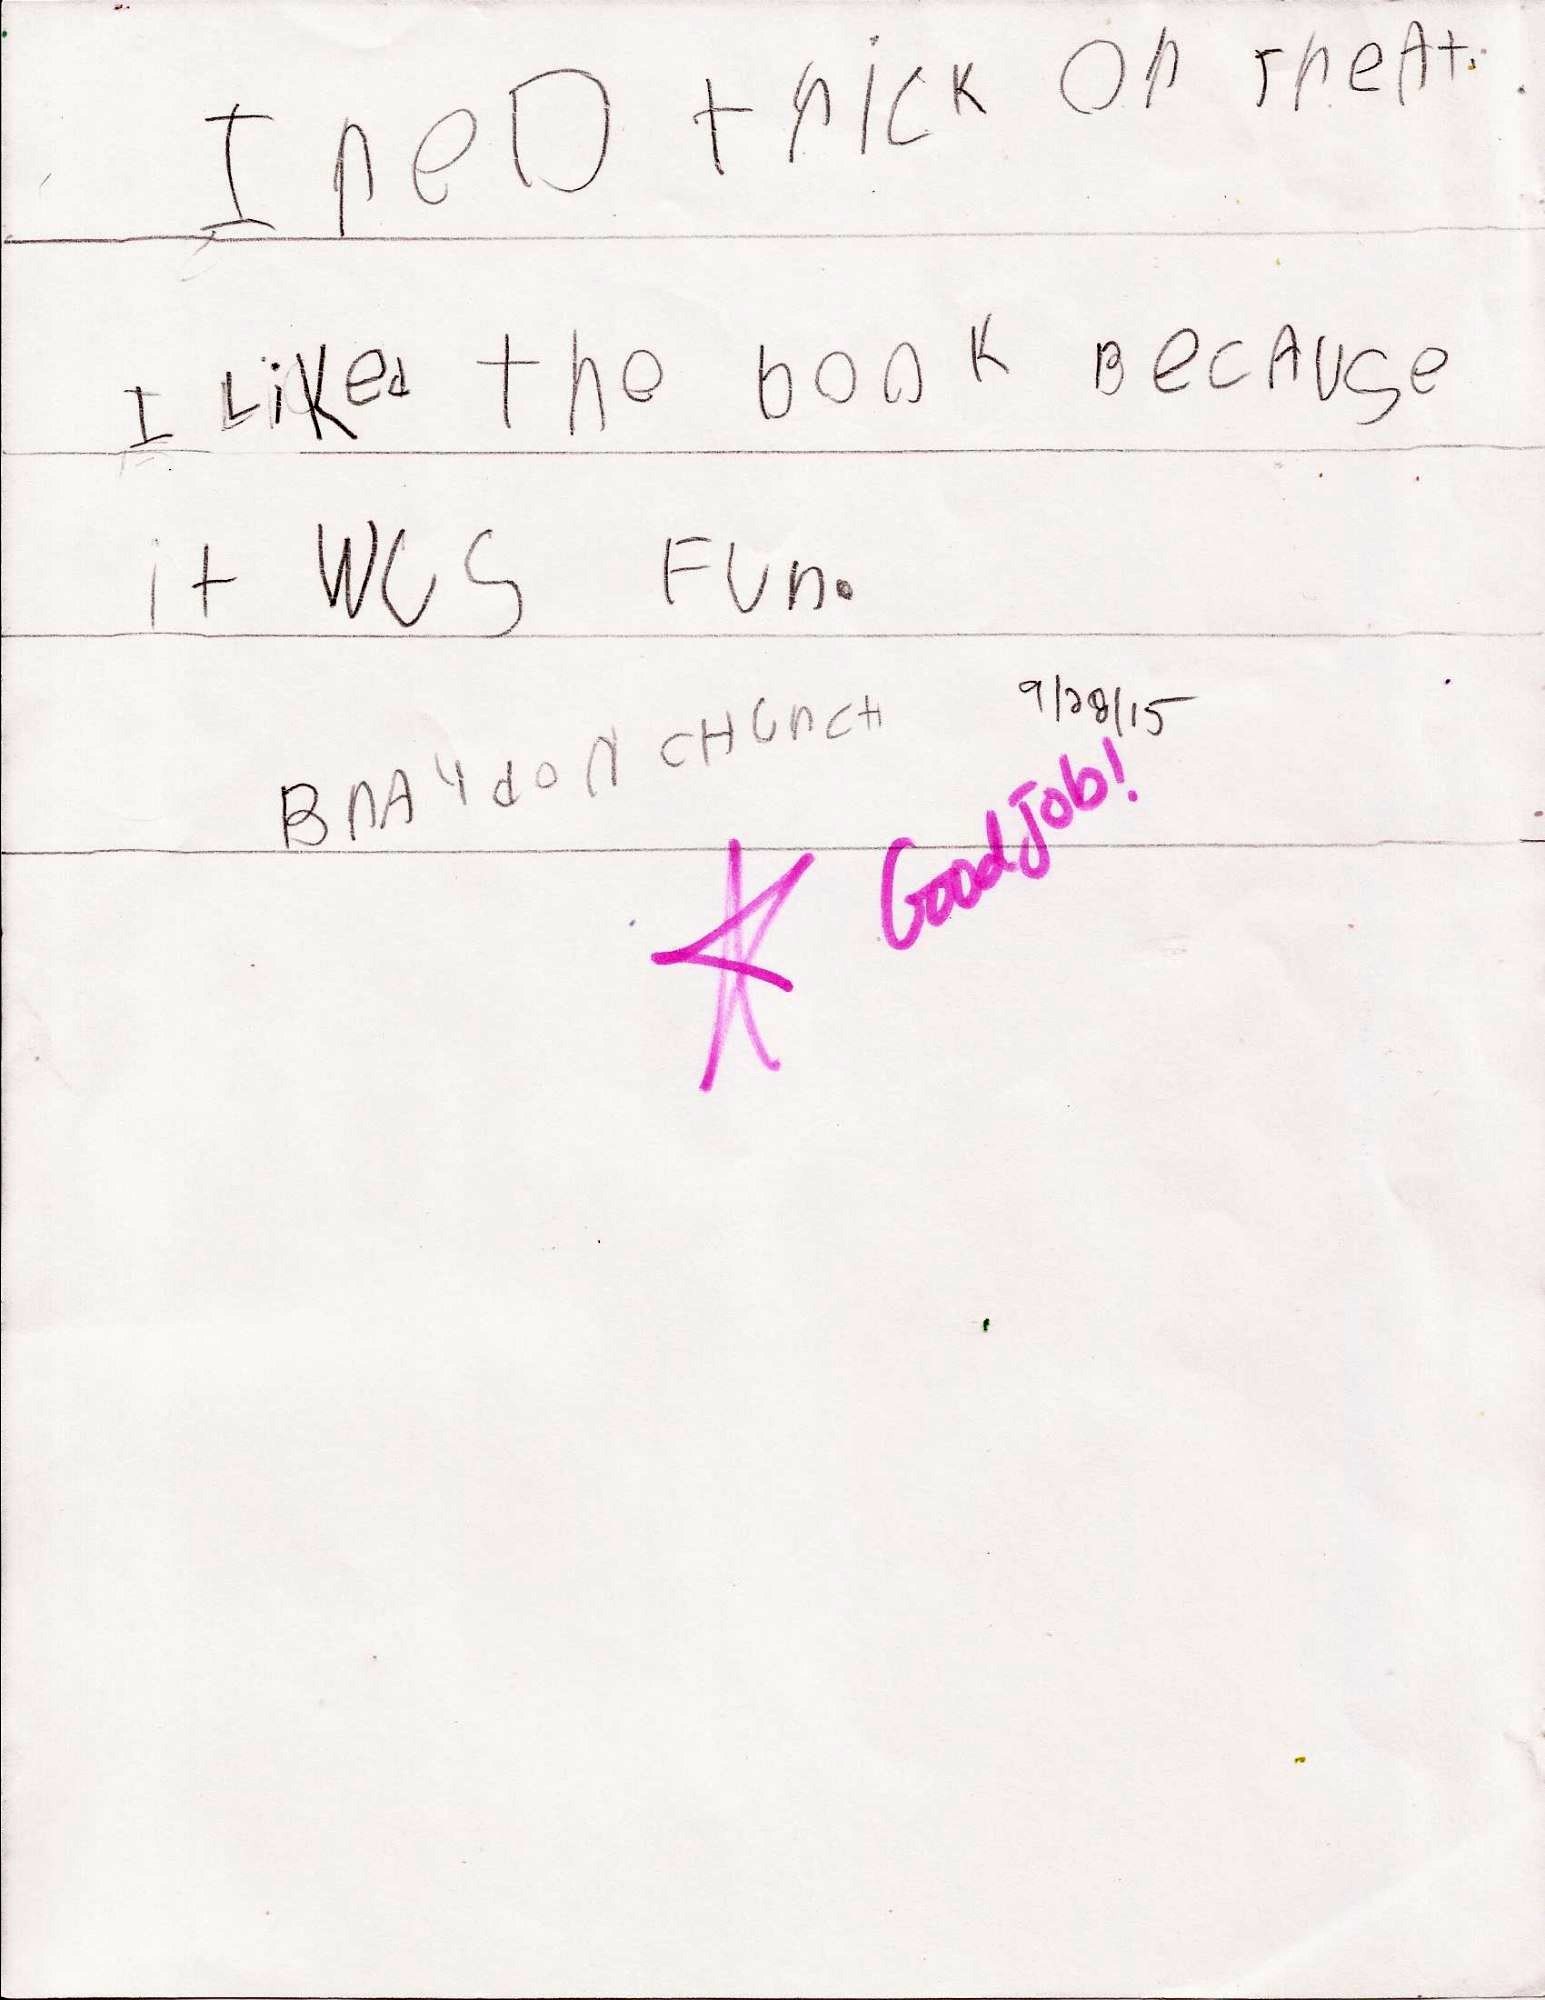 I reD trick or Treat.
I Liked the book BecAuse
it wus Fun.
BrAydon CHurcH 9/28/15
Good Job!